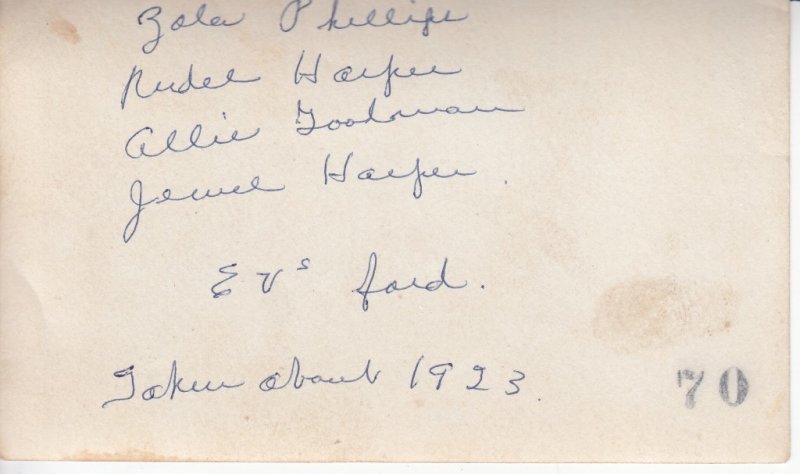 Zola Phillips
Rudel Harper
Allie Goodman
Jewel Harper.
EVs ford.
Taken about 1923.
70